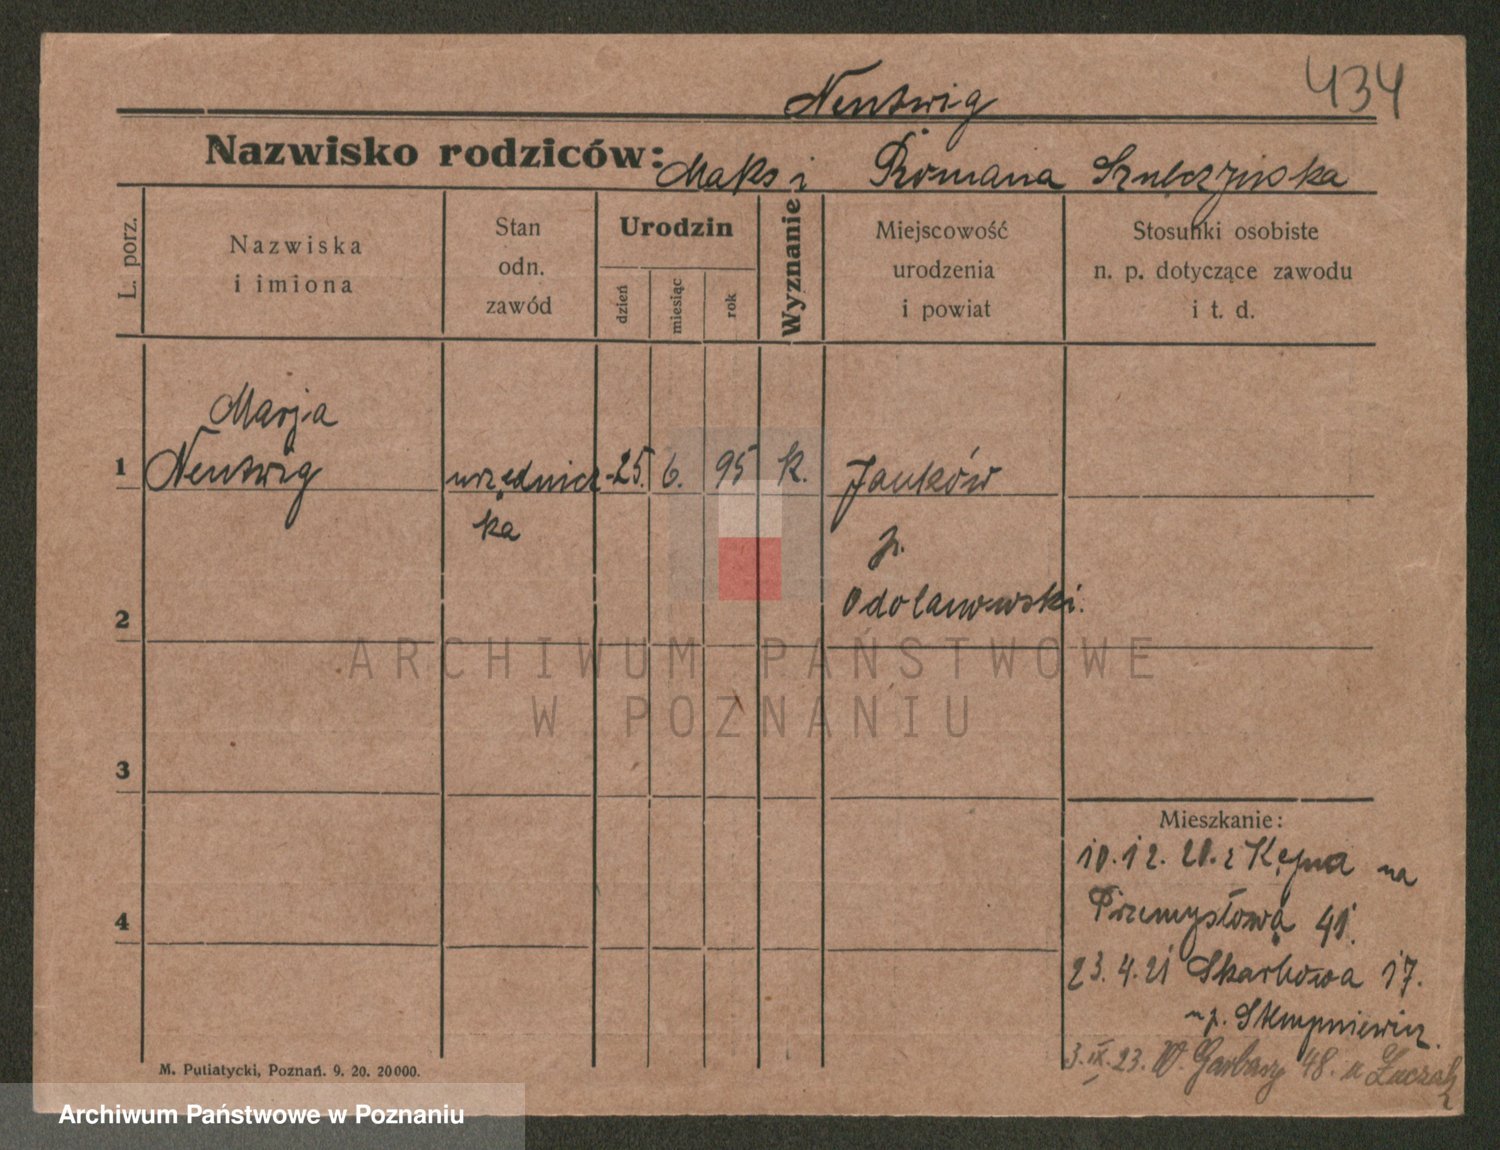 434
Nentwig
Nazwisko rodziców: Maks i Romana Szulczyńska
L. porz.
Nazwiska
i imiona
Stan
odn.
zawód
Urodzin
dzień
miesiąc
rok
Wyznanie
Miejscowość
urodzenia
i powiat
Stosunki osobiste
n. p. dotyczące zawodu
i t. d.
Marja
1 Nentwig urzędnicz- 25. 6. 95 k. Janków
ka
p.
2 Odolanowski.
ARCHIWUM PAŃSTWOWE
W POZNANIU
3
Mieszkanie:
10.12.20. z Kępna na
4 Przemysłową 41.
23.4.21 Skarbowa 17.
u p. Stempniewicz.
3.IX.23. W. Garbary 48. u
M. Putiatycki, Poznań. 9. 20. 20000.
Archiwum Państwowe w Poznaniu